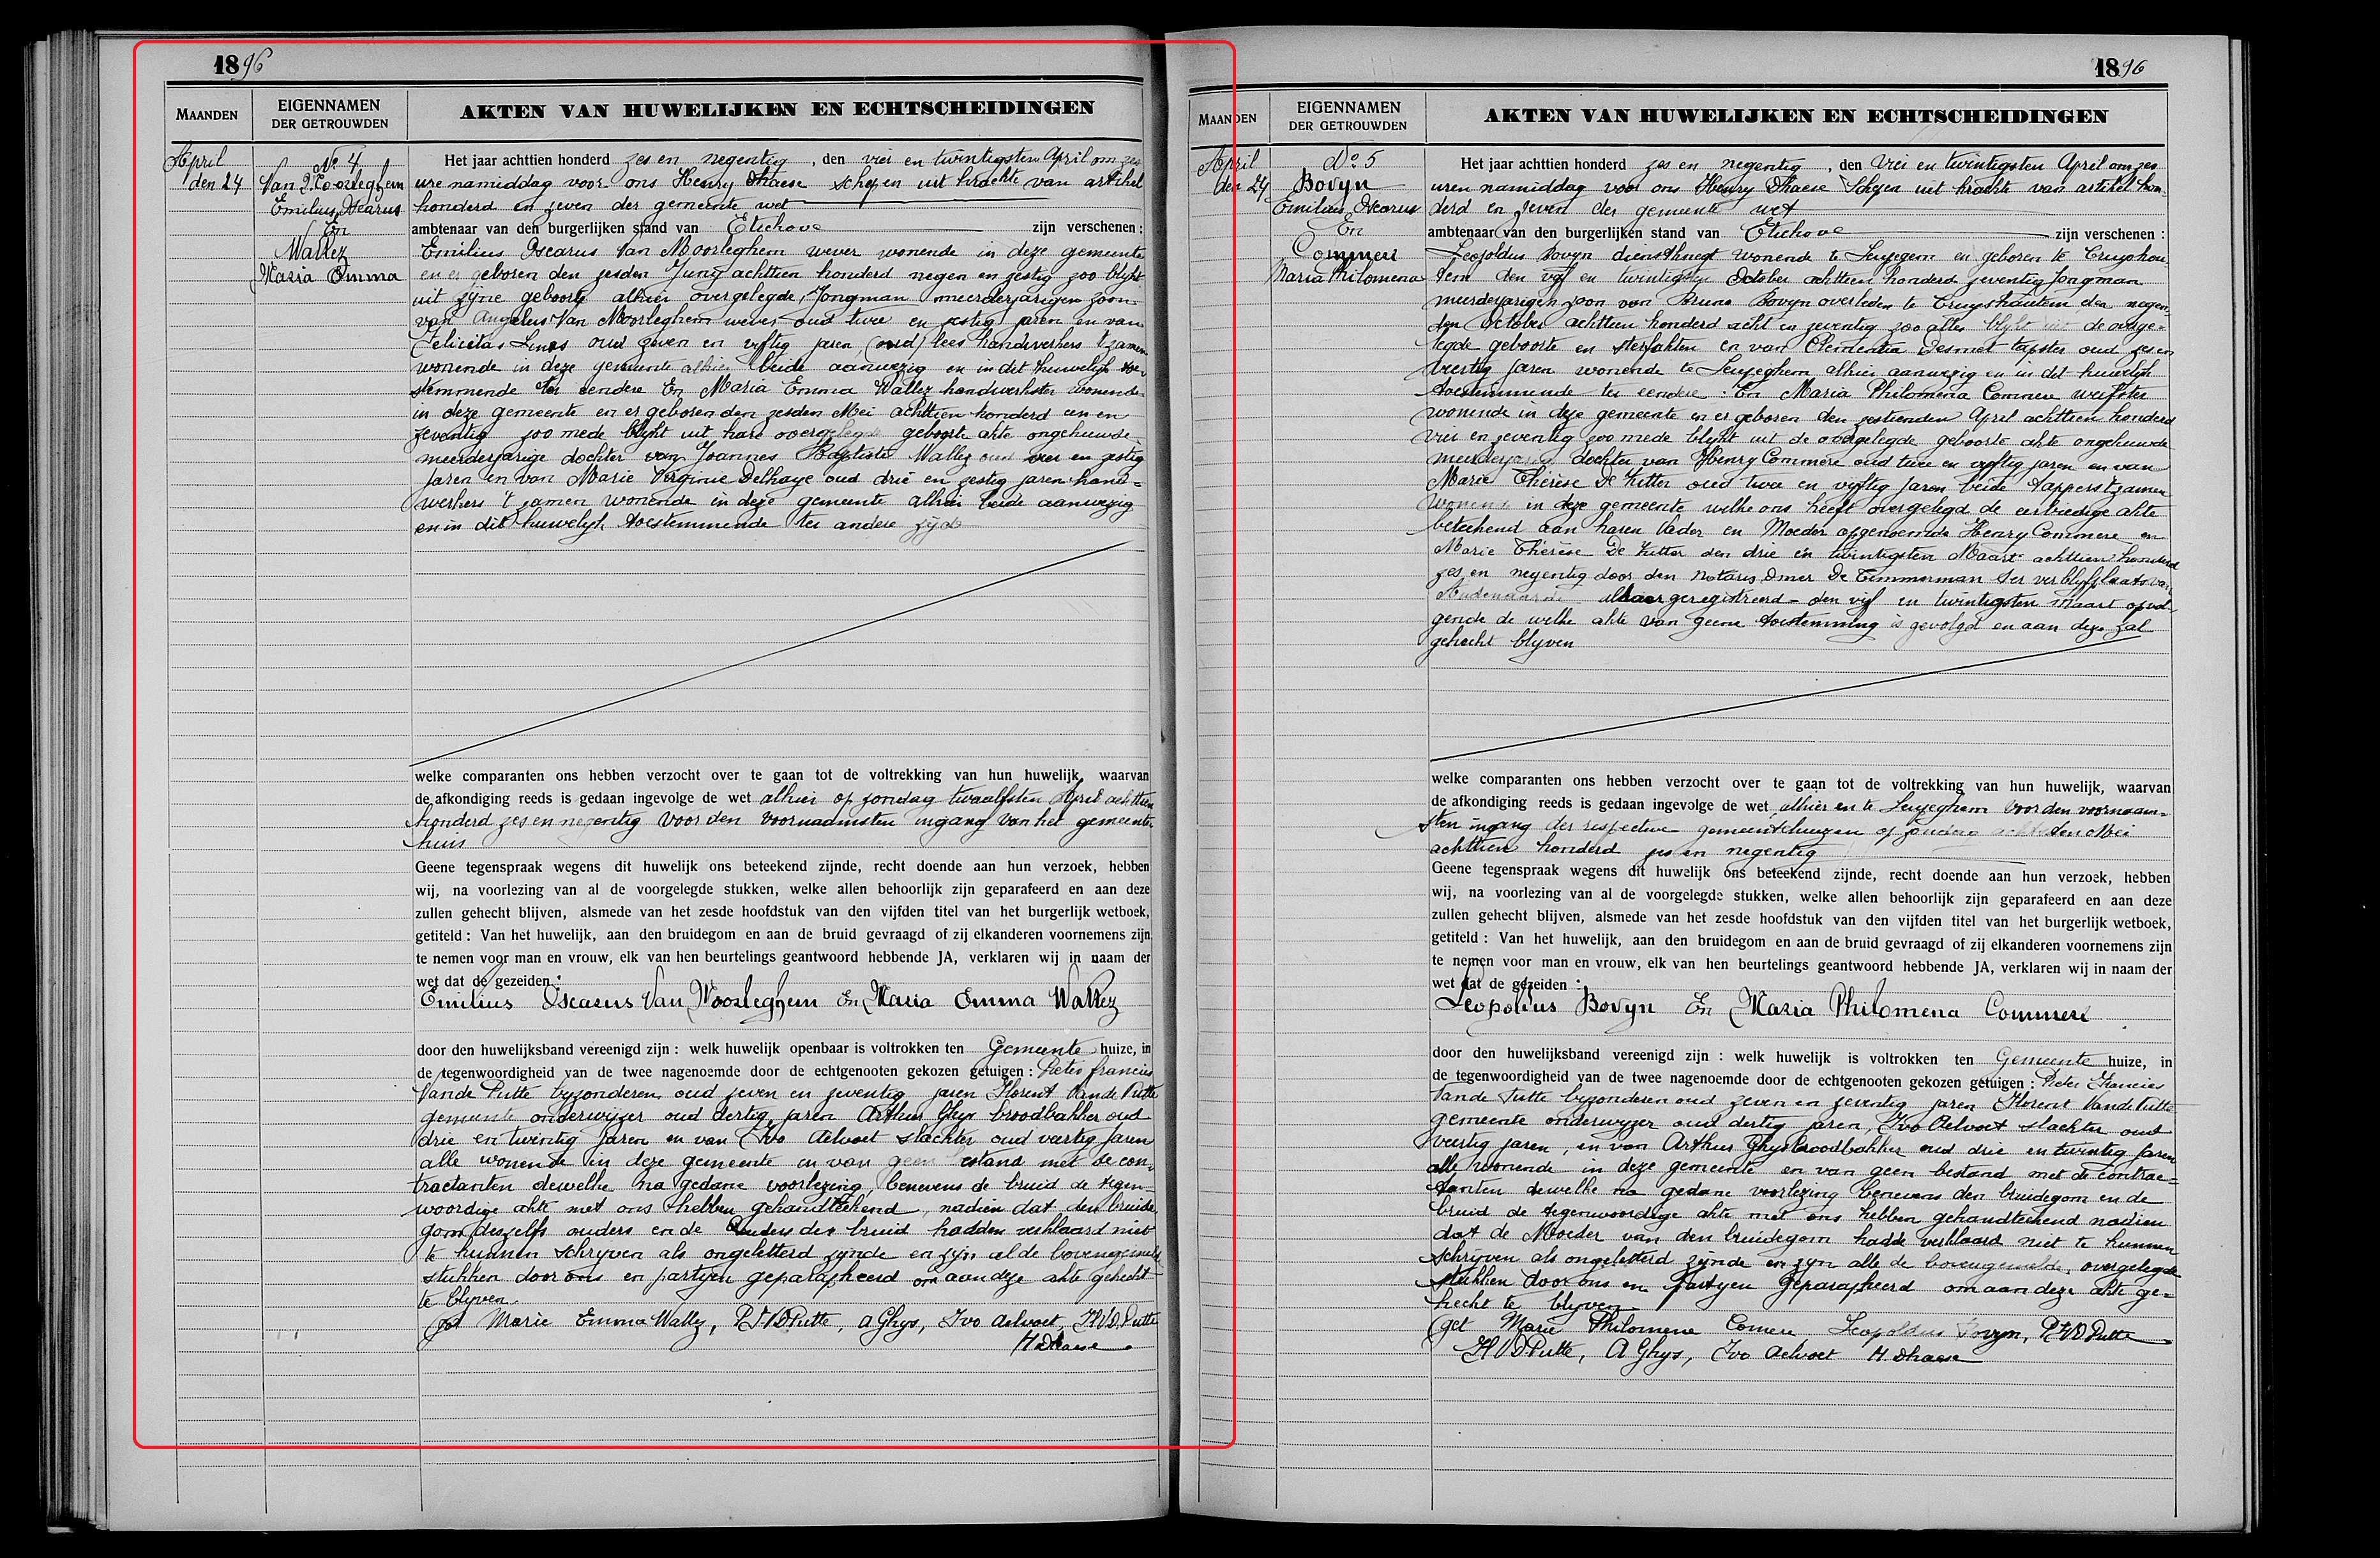 1896
MAANDEN
EIGENNAMEN
DER GETROUWDEN
AKTEN VAN HUWELIJKEN EN ECHTSCHEIDINGEN
April
den 24
No 4
Van Moorleghem
Emilius Oscarus
En
Wallez
Maria Emma
Het jaar achttien honderd zes en negentig, den vier en twintigsten April om zes
ure namiddag voor ons Henry Dhaese schepen uit krachte van artikel
honderd en zeven der gemeente wet
ambtenaar van den burgerlijken stand van Etichove zijn verschenen:
Emilius Oscarus Van Moorleghem wever wonende in deze gemeente
en er geboren den zesden Juny achttien honderd negen en zestig zoo blijkt
uit zijne geboorte alhier overgelegde, Jongman meerderjarigen zoon
van Angelus Van Moorleghem wever oud twee en zestig jaren en van
Felicitas oud zeven en vyftig jaren (oud) lees handwerkers t'zamen
wonende in deze gemeente alhier beide aanwezig en in dit huwelijk toe
stemmende ter eendere En Maria Emma Wallez handwerkster wonende
in deze gemeente en er geboren den zesden Mei achttien honderd een en
zeventig zoo mede blijkt uit hare overgelegde geboorte akte ongehuwde
meerderjarige dochter van Joannes Baptiste Wallez oud vier en zestig
jaren en van Marie Virginie Delhaye oud drie en zestig jaren hand=
werkers 't zamen wonende in deze gemeente alhier beide aanwezig
en in dit huwelijk toestemmende ter andere zijde
welke comparanten ons hebben verzocht over te gaan tot de voltrekking van hun huwelijk, waarvan
de afkondiging reeds is gedaan ingevolge de wet alhier op zondag twaalfsten April achttien
honderd zes en negentig voor den voornaamsten ingang van het gemeente
huis
Geene tegenspraak wegens dit huwelijk ons beteekend zijnde, recht doende aan hun verzoek, hebben
wij, na voorlezing van al de voorgelegde stukken, welke allen behoorlijk zijn geparafeerd en aan deze
zullen gehecht blijven, alsmede van het zesde hoofdstuk van den vijfden titel van het burgerlijk wetboek,
getiteld: Van het huwelijk, aan den bruidegom en aan de bruid gevraagd of zij elkanderen voornemens zijn
te nemen voor man en vrouw, elk van hen beurtelings geantwoord hebbende JA, verklaren wij in naam der
wet dat de gezeiden:
Emilius Oscarus Van Moorleghem En Maria Emma Wallez
door den huwelijksband vereenigd zijn: welk huwelijk openbaar is voltrokken ten Gemeente huize, in
de tegenwoordigheid van de twee nagenoemde door de echtgenooten gekozen getuigen: Pieter francies
Vande Putte byzonderen oud zeven en zeventig jaren Florent Vande Putte
gemeente onderwijzer oud dertig jaren Arthur Ghys broodbakker oud
drie en twintig jaren en van Ivo Aelvoet slachter oud veertig jaren
alle wonende in deze gemeente en van geen bestand met de con
tractanten dewelke na gedane voorlezing, benevens de bruid de tegen
woordige akte met ons hebben gehandteekend, nadien dat den bruide
gom deszelfs ouders en de ouders der bruid hadden verklaard niet
te kunnen schryven als ongeletterd zynde en zyn al de bovengemelde
stukken door ons en partyen geparapheerd om aan deze akte gehecht
te blyven.
get Marie Emma Wallez, P F VD Putte, A Ghys, Ivo Aelvoet, Fl VD Putte
H Dhaese
1896
MAANDEN
EIGENNAMEN
DER GETROUWDEN
AKTEN VAN HUWELIJKEN EN ECHTSCHEIDINGEN
April
den 24
No 5
Bovyn
Emilius Oscarus
En
Commere
Maria Philomena
Het jaar achttien honderd zes en negentig, den vier en twintigsten April om zes
uren namiddag voor ons Henry Dhaese Schepen uit krachte van artikel hon
derd en zeven der gemeente wet
ambtenaar van den burgerlijken stand van Etichove zijn verschenen:
Leopoldus Bovyn dienstknegt wonende te Leupegem en geboren te Cruyshou
tem den vyf en twintigsten October achttien honderd zeventig Jongman
meerderjarigen zoon van Bruno Bovyn overleden te Cruyshautem den negen
den October achttien honderd acht en zeventig zoo alles blykt uit de overge=
legde geboorte en sterfakten en van Clementia Desmet tapster oud zes en
veertig jaren wonende te Leupeghem alhier aanwezig en in dit huwelijk
toestemmende ter eendere. En Maria Philomena Commere weefster
wonende in deze gemeente en er geboren den zestienden April achttien honderd
vier en zeventig zoo mede blijkt uit de overgelegde geboorte akte ongehuwde
meerderjarige dochter van Henry Commere oud twee en vyftig jaren en van
Marie Thérèse De Zutter oud twee en vyftig jaren beide tappers t'zamen
wonende in deze gemeente welke ons heeft overgelegd de eerbiedige akte
beteekend aan haren Vader en Moeder opgenoemde Henry Commere en
Marie Thérèse De Zutter den drie en twintigsten Maart achttien honderd
zes en negentig door den notaris Omer De Timmerman ter verblyfplaats van
Audenaarde aldaar geregistreerd den vijf en twintigsten Maart opvol=
gende de welke akte van geene toestemming is gevolgd en aan deze zal
gehecht blyven
welke comparanten ons hebben verzocht over te gaan tot de voltrekking van hun huwelijk, waarvan
de afkondiging reeds is gedaan ingevolge de wet alhier en te Leupeghem voor den voornaam=
sten ingang der respective gemeentehuizen op zondag Mei
achttien honderd zes en negentig
Geene tegenspraak wegens dit huwelijk ons beteekend zijnde, recht doende aan hun verzoek, hebben
wij, na voorlezing van al de voorgelegde stukken, welke allen behoorlijk zijn geparafeerd en aan deze
zullen gehecht blijven, alsmede van het zesde hoofdstuk van den vijfden titel van het burgerlijk wetboek,
getiteld: Van het huwelijk, aan den bruidegom en aan de bruid gevraagd of zij elkanderen voornemens zijn
te nemen voor man en vrouw, elk van hen beurtelings geantwoord hebbende JA, verklaren wij in naam der
wet dat de gezeiden:
Leopoldus Bovyn En Maria Philomena Commere
door den huwelijksband vereenigd zijn: welk huwelijk is voltrokken ten Gemeente huize, in
de tegenwoordigheid van de twee nagenoemde door de echtgenooten gekozen getuigen: Pieter Francies
Vande Putte byzonderen oud zeven en zeventig jaren Florent Vande Putte
gemeente onderwyzer oud dertig jaren, Ivo Aelvoet slachter oud
veertig jaren, en van Arthur Ghys broodbakker oud drie en twintig jaren
alle wonende in deze gemeente en van geen bestand met de contrac=
tanten dewelke na gedane voorlezing benevens den bruidegom en de
bruid de tegenwoordige akte met ons hebben gehandteekend nadien
dat de Moeder van den bruidegom hadde verklaard niet te kunnen
schrijven als ongeletterd zijnde en zyn alle de bovengemelde, overgelegde
stukken door ons en partyen geparapheerd om aan deze akte ge=
hecht te blyven
get Marie Philomene Comere Leopoldus Bovyn, P F VD Putte
Fl VD Putte, A Ghys, Ivo Aelvoet H. Dhaese